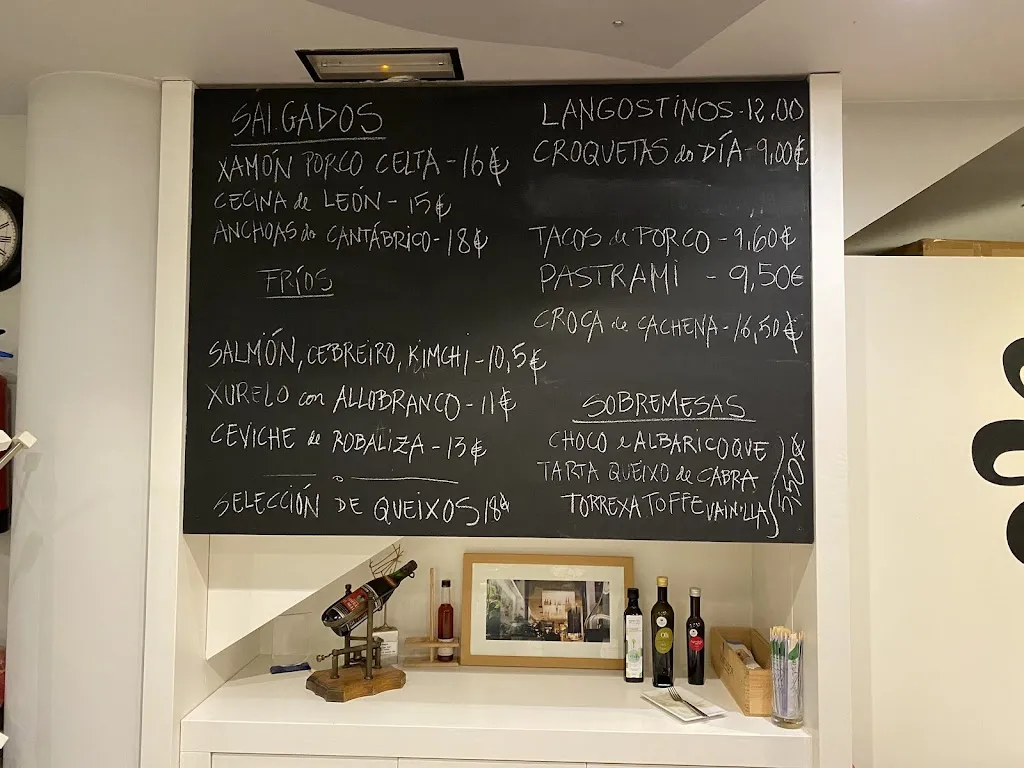 SALGADOS
XAMÓN PORCO CELTA - 16€
CECINA de LEÓN - 15€
ANCHOAS do CANTÁBRICO - 18€
FRÍOS
SALMÓN, CEBREIRO, KIMCHI - 10,5€
XURELO con ALLOBRANCO - 11€
CEVICHE de ROBALIZA - 13€
SELECCIÓN DE QUEIXOS 18€
LANGOSTINOS - 12,00
CROQUETAS do DÍA - 9,00€
TACOS de PORCO - 9,60€
PASTRAMI - 9,50€
CROCA de CACHENA - 16,50€
SOBREMESAS
CHOCO e ALBARICOQUE
TARTA QUEIXO de CABRA
TORREXA TOFFE VAINILLA